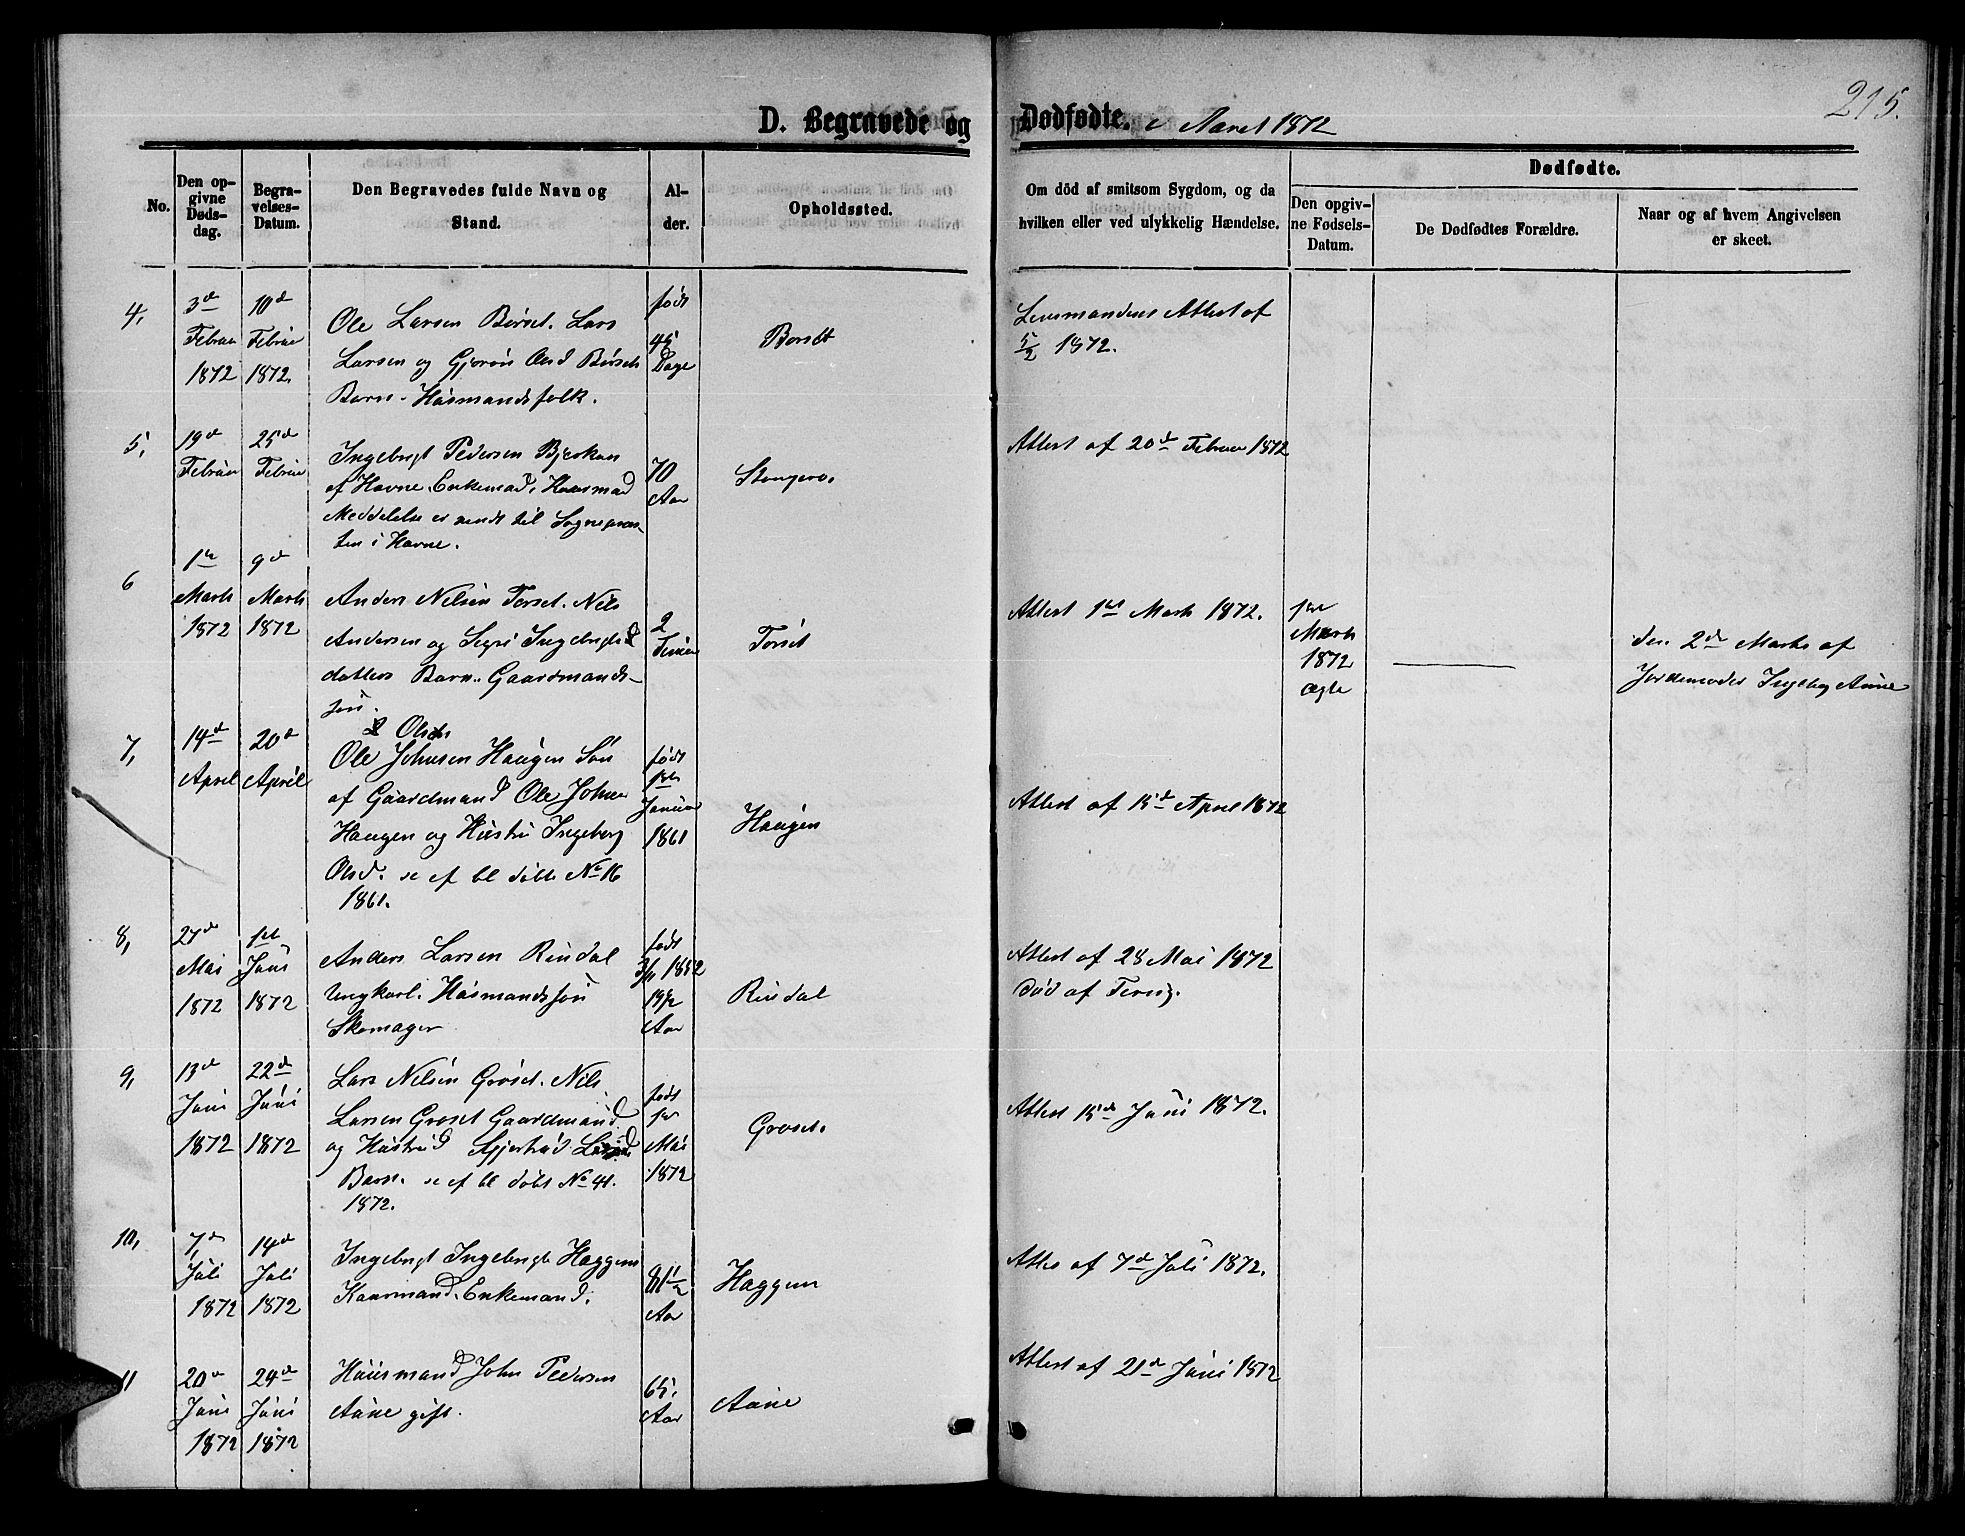 215.
D. Begravede og Dødfødte. i Aaret 1872
No.
Den op-
givne
Døds-
dag.
Begra-
velses-
Datum.
Den Begravedes fulde Navn og
Stand.
Al-
der.
Opholdssted.
Om död af smitsom Sygdom, og da
hvilken eller ved ulykkelig Hændelse.
Dødfødte.
Den opgiv-
ne Fødsels-
Datum.
De Dødfødtes Forældre.
Naar og af hvem Angivelsen
er skeet.
4,
3d
Februar
1872
10d
Februar
1872.
Ole Larsen Børset. Lars
Larsen og Gjørøn Olsd Børseth
Barn - Húsmandsfolk.
født
45
Dage
Borset
Lensmandens Attest af
5/2 1872.
5,
19d
Februar
25d
Februar
Ingebrigt Pedersen Bjerkan
af Havne. Enkemad, Kaarmad
Meddelelse er sendt til Sognepræs-
ten i Havne.
70
Aar
Attest af 20d Februar 1872
6
1ste
Marts
1872
9d
Marts
1872
Anders Nilsen Torset. Nils
Andersen og Sigri Ingebrigts
datters Barn. Gaardmands-
søn.
2
Timer
Torset
Attest 1ste Marts 1872.
1ste
Marts
1872
ægte
den 2d Marts af
Jordemoder Ingebg Aune
7,
14d
April
20d
April
Olsen
Ole Johnsen Haugen Søn
af Gaardmand Ole Johnsen
Haugen og Hústrú Ingeborg
Olsd. se ef bl døbte No 16
1861.
født
1ste
Januar
1861
Haúgen
Attest af 15d April 1872
8,
27de
Mai
1872
1ste
Júni
1872
Anders Larsen Rindal
Ungkarl. Húsmandssøn
Skomager
født
3/11 1852
19 1/2
Aar
Rindal
Attest af 28 Mai 1872
død af Tæring.
9,
13d
Júni
1872
22d
Júni
1872
Lars Nilsen Grøset. Nils
Larsen Groset Gaardmand
og Hústrú Gjertrúd Larsd
Barn. se ef bl døbt No 41.
1872.
født
1ste
Mai
1872
Groset.
Attest 15de Júni 1872.
10,
7d
Júli
1872
14d
Juli
1872
Ingebrigt Ingebrigts Haggen
Kaarmand. Enkemand.
81 1/2
Aar
Haggen
Attes af 7d Júli 1872.
11
20d
Júni
1872
24d
Júni
1872
Húúsmand John Pedersen
Aúne gift.
65.
Aar
Aúne
Attest af 21d Júni 1872